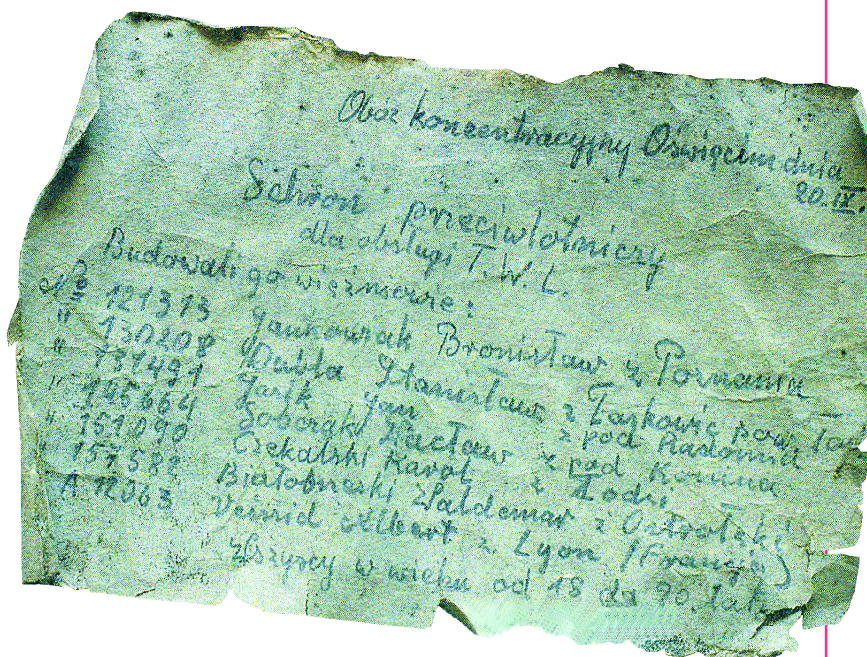 Obóz koncentracyjny Oświęcim dnia
20.IX.
Schron przeciwlotniczy
dla obsługi T.W.L.
Budowali go więźniowie:
No 121313 Jankowiak Bronisław z Poznania
" 130208 Dubla Stanisław z Łaskowic pow. Łas
" 131491 Jasik Jan z pod Radomia
" 145664 Sobczak Wacław z pod Konina
" 151090 Czekalski Karol z Łodzi
" 157582 Białobrzeski Waldemar z Ostrołęki
A 12063 Veisid Albert z Lyon (Francja)
Wszyscy w wieku od 18 do 20 lat